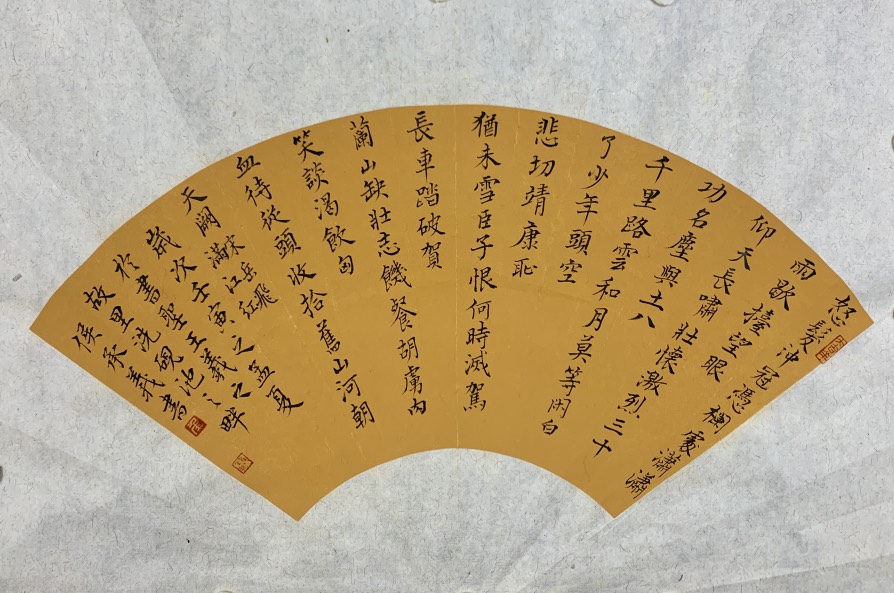 怒髮沖冠憑欄處瀟瀟
雨歇擡望眼
仰天長嘯壯懷激烈三十
功名塵與土八
千里路雲和月莫等閑白
了少年頭空
悲切靖康恥
猶未雪臣子恨何時滅駕
長車踏破賀
蘭山缺壯志饑餐胡虜肉
笑談渴飲匈
血待從頭收拾舊山河朝
天闕
宋岳飛
滿江紅
歲次壬寅之孟夏
於書聖王羲之
故里洗硯池之畔
侯承義書